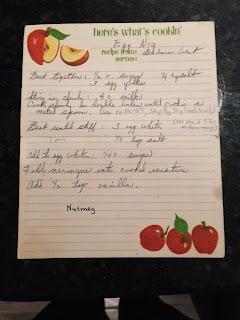 here's what's cookin'
Egg Nog
recipe from
serves:
Beat together: 1/2 c. sugar 1/4 tsp salt
3 egg yolks
Stir in slowly: 4 c milk
Cook slowly in double boiler until coats a
metal spoon.
Beat until stiff: 3 egg whites
1/8 tsp salt
Add to egg whites: 1/4 c. sugar
Fold meringue into cooked mixture
Add 1/2 tsp vanilla.
Nutmeg